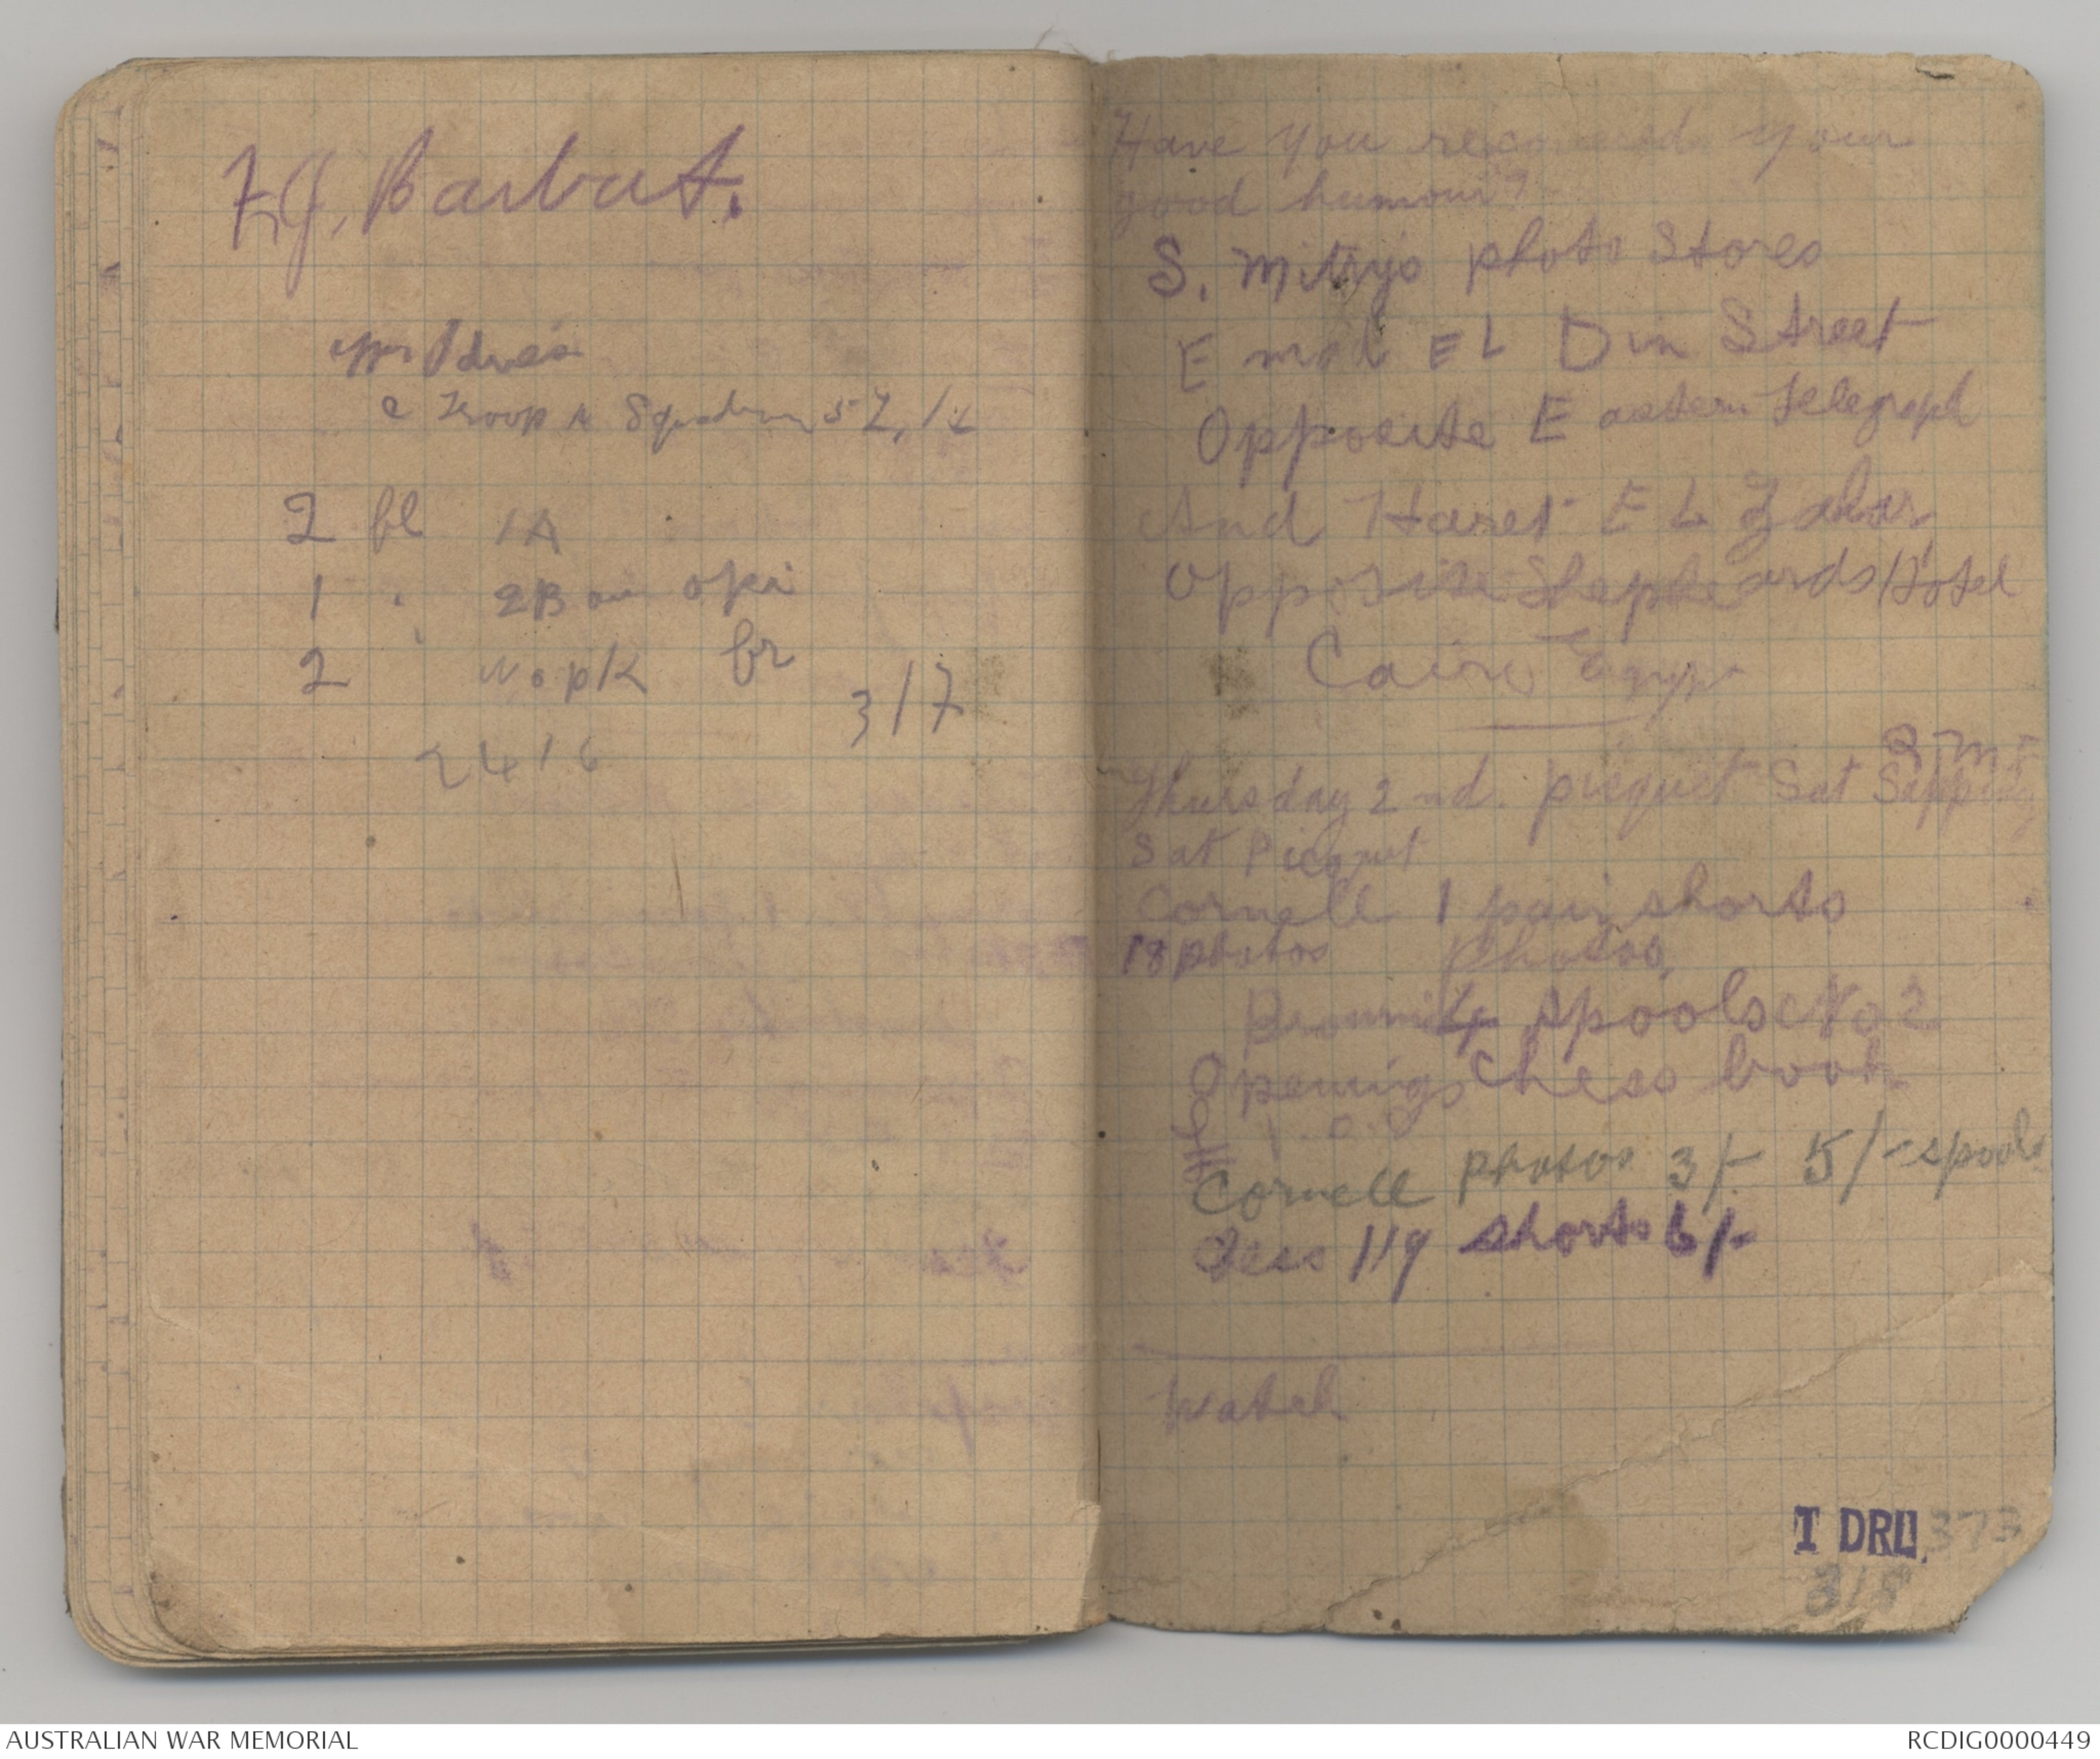 Barbut.
C Troop A Squadron 5
2 bl 1A
1 " 2B
2 br
3/7
2416
Have you recovered your
good humour?
S. Mitrys photo Stores
Emad EL Din Street
Opposite Eastern Telegraph
And Haret EL Zahar
Opposite Shepheards Hotel
Cairo Egypt
Thursday 2nd. picquet Sat Sapping
Sat Picquet
Cornell 1 pair shorts
18 photos Photos
4 spools No 2
Openings Chess book
Cornell Photos 3/- 5/- spools
less 1/9 shorts 6/-
watch
I DRL 373
3/8
AUSTRALIAN WAR MEMORIAL
RCDIG0000449